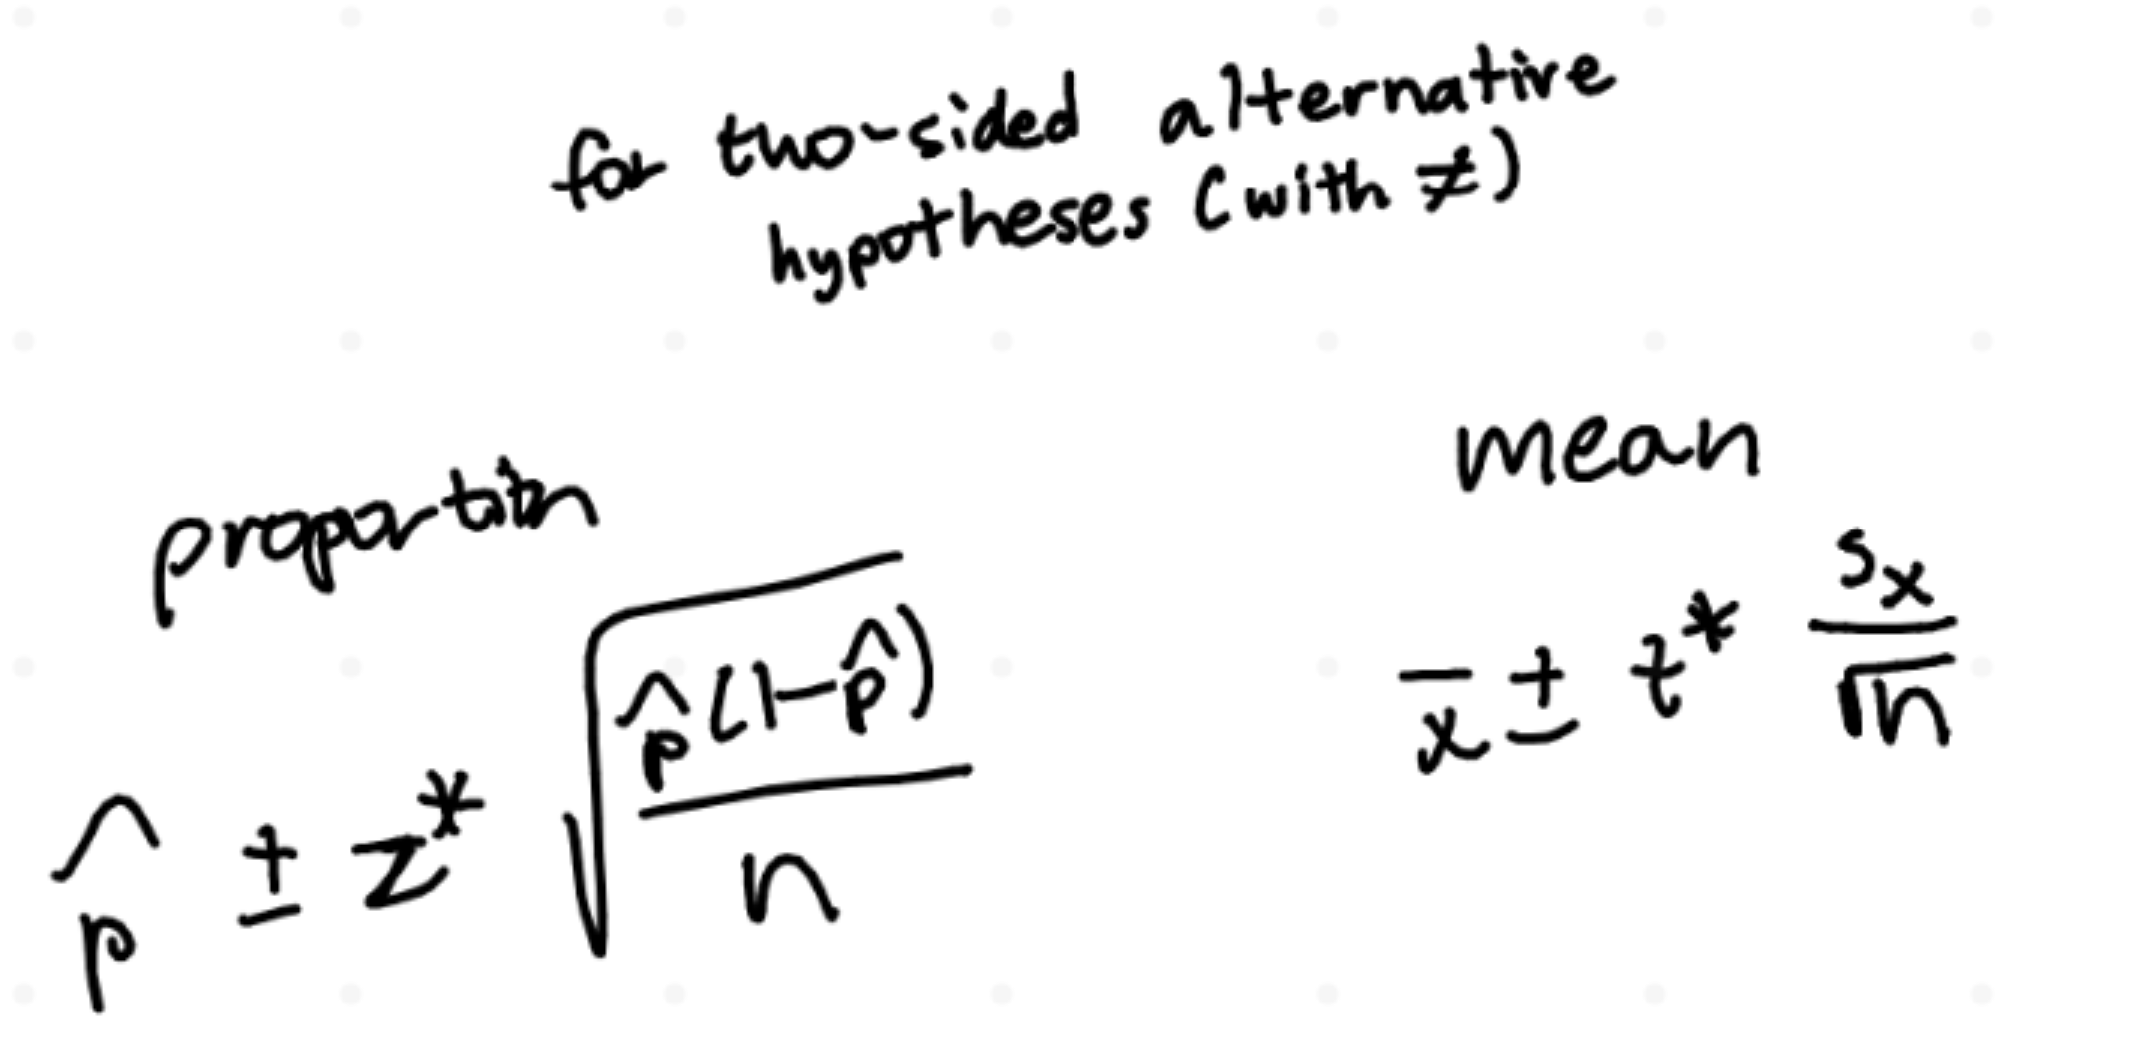 for two-sided alternative
hypotheses (with ≠)
proportion
p̂ ± z* √(p̂(1-p̂)/n)
mean
x̄ ± t* sₓ/√n